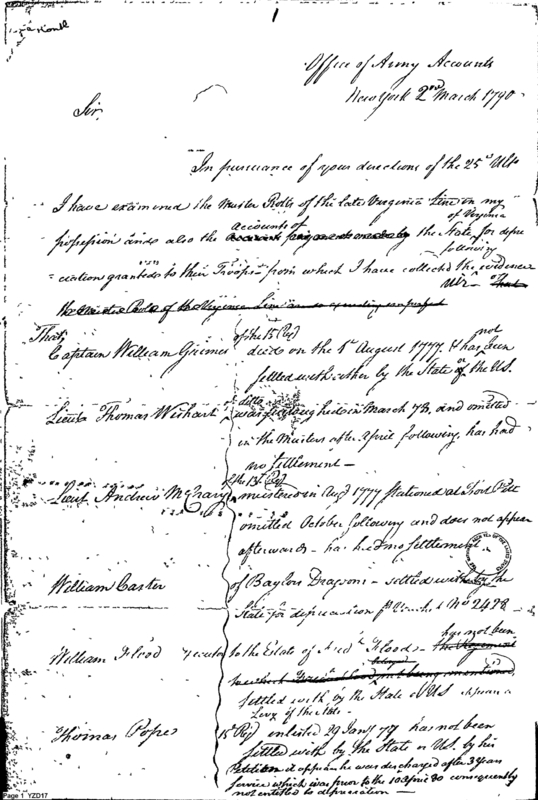 1
Office of Army Accounts
New York 2nd March 1790
Sir
In pursuance of your directions of the 25th Ulto
I have examined the Muster Rolls of the late Virginia Line in my
possession and also the accounts of the State of Virginia for depre
=ciation granted to their Troops from which I have collected the following evidence
Viz
the Muster Rolls of the Virginia Line
That
Captain William Grimes of the 15 Regt died on the 1st August 1777. & has not been
settled with either by the State or the U.S.
Lieut Thomas Wishart ditto was furloughed in March 78, and omitted
in the Musters after April following, has had
no settlement —
Lieut Andrew McCrary of the 13th Regt mustered in Augt 1777 stationed at Fort Pitt
omitted October following and does not appear
afterwards — has had no settlement
William Carter of Baylors Dragoons — settled with by the
State for depreciation No 2428
William Flood to the Estate of Flood — has not been
settled with by the State or US
Levy of the State
Thomas Pope 15 Regt enlisted 29 Jany 77 has not been
settled with by the State or U.S. by his
Petition it appears he was discharged after 3 Years
service which was prior to the 10 April 80 consequently
not entitled to depreciation —
Page 1 YZD17